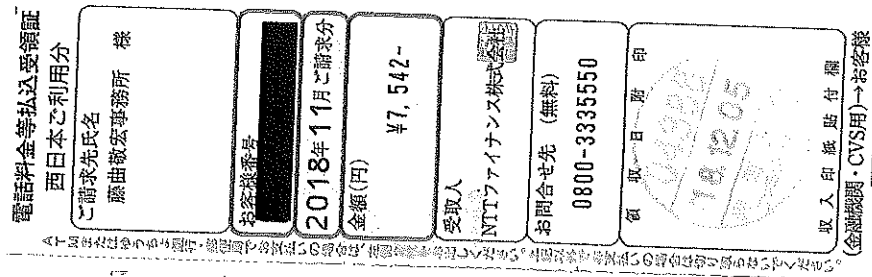 電話料金等払込受領証
西日本ご利用分
ご請求先氏名
藤由敬宏事務所 様
お客様番号
2018年11月ご請求分
金額(円)
¥7,542-
受取人
NTTファイナンス株式会社
お問合せ先 (無料)
0800-3335550
領収日附印
18.12.05
収入印紙貼付欄
(金融機関・CVS用)→お客様